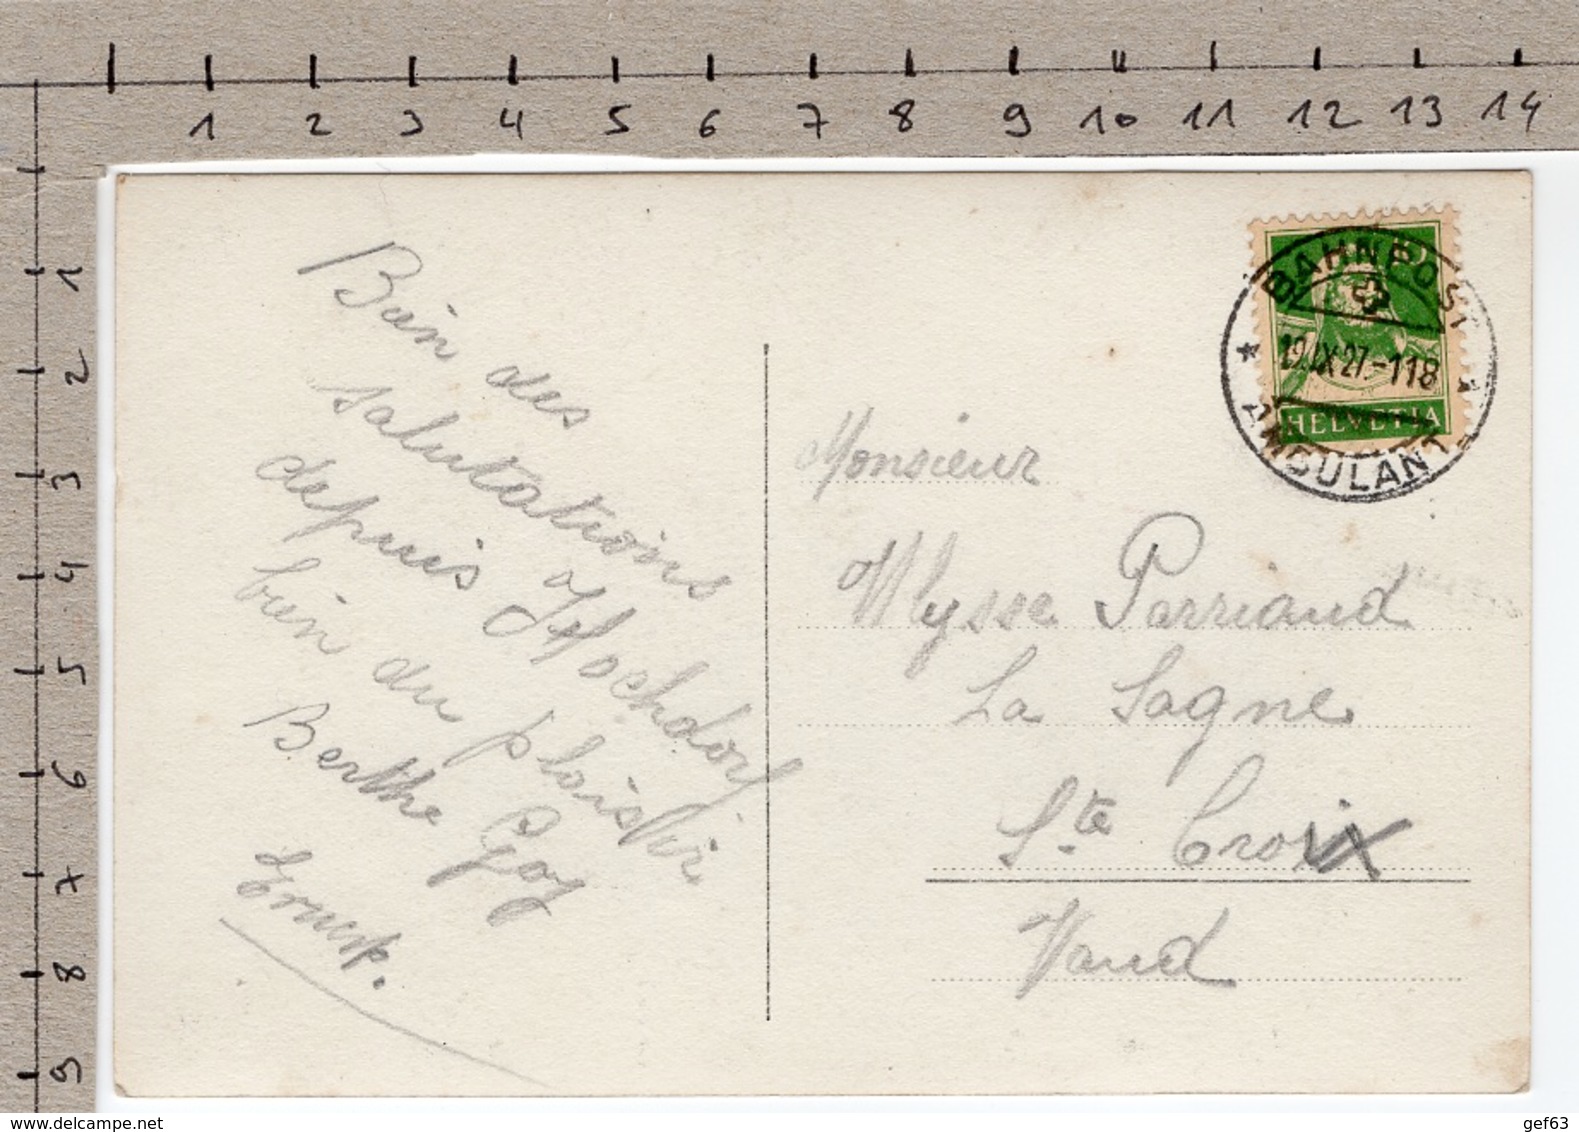 1 2 3 4 5 6 7 8 9 10 11 12 13 14
1
2
3
4
5
6
7
8
9
Bien des
salutations
depuis Hochdorf
bien du plaisir
Berthe Goy
Ernest.
BAHNPOST
19.IX.27.-118
HELVETIA
AMBULANT
Monsieur
Ulysse Parriaud
La Sagne
Ste Croix
Vaud
www.delcampe.net
gef63